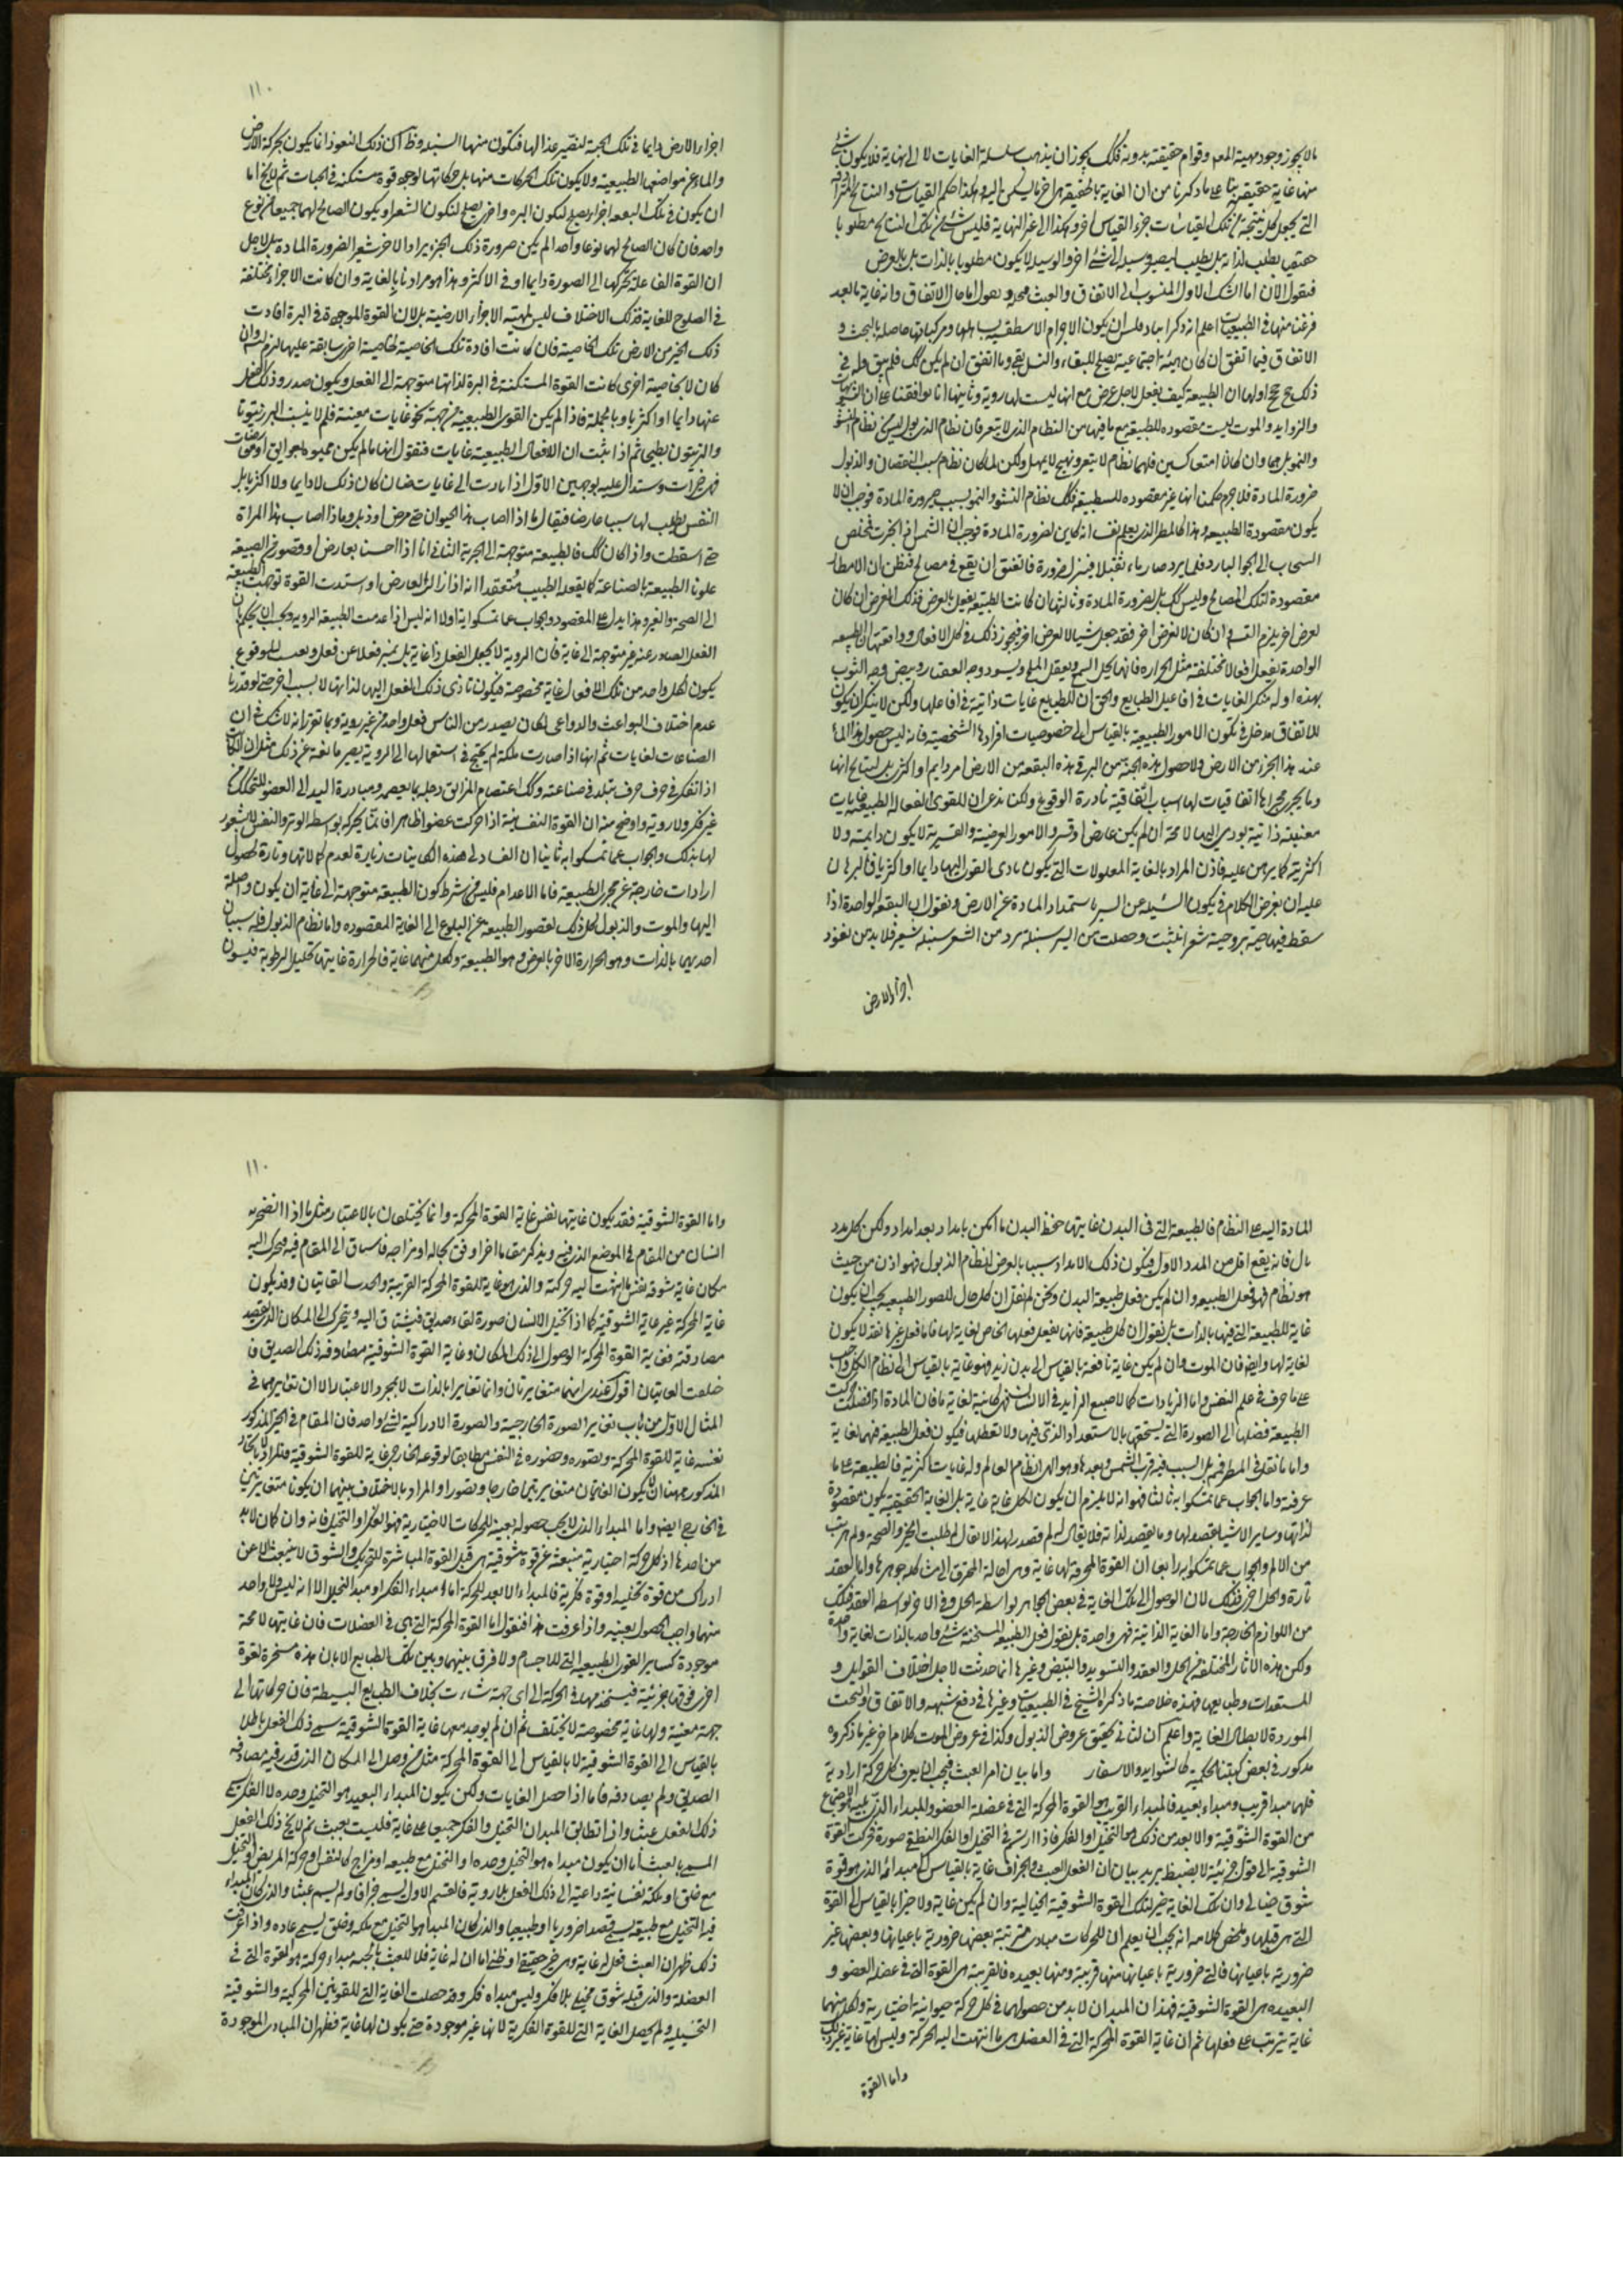 ما لا يجوز وجود مهية المعلول وقوام حقيقته بدونه فكك يجوز ان يذهب سلسلة الغايات لا الى نهاية فلا يكون شئ
منها غاية حقيقية بناء على ما ذكرنا من ان الغاية بالحقيقة هي اخر ما ليكن اليه وهكذا حكم القياسات والنتائج المترادفة
التي يجعل كل نتيجة من تلك القياسات جزء القياس اخر وهكذا الى غير النهاية فليس شئ من تلك النتائج مطلوبا
حقيقيا يطلب لذاته بل يطلب ليصير وسيلة الى شئ اخر والوسيلة لا يكون مطلوبا بالذات بل بالعرض
فنقول الان اما الشك الاول المنسوب الى الاتفاق والعبث فنقول اما حال الاتفاق وانه غاية ما بعد
فرغنا منها في الطبيعيات اعلم انه ذكر انباذقلس ان يكون الاجرام الاسطقسية بها ومركباتها حاصلة بالبخت و
الاتفاق فيما اتفق ان كان هيئة اجتماعية يصلح للبقاء والنسل بقي وما اتفق ان لم يكن كك فلم يبق وله في
ذلك حجج اولها ان الطبيعة كيف يفعل لاجل عرض مع انها ليست لها روية وثانيها انا موافقنا على ان التشويهات
والزوايد والموت ليست مقصودة للطبيعة مع ما فيها من النظام الذي لا يتغير فان نظام الذبول ليس نظام النشو
والنمو بل هما وان كانا متعاكسين فلهما نظام لا يتغير ونهج لا يمهل ولكن لما كان نظام سبب النقصان والذبول
ضرورة المادة فلا جرم حكمنا انها غير مقصودة للطبيعة فكك نظام النشو والنمو بسبب ضرورة المادة فوجب ان لا
يكون مقصودة الطبيعة وهذا كالمطر الذي يعلم يقينا انه كاين لضرورة المادة فوجب ان الشمس اذا بخرت فخلص
السحاب الى الجو البارد فلما برد صار ماء ثقيلا فينزل ضرورة فاتفق ان يقع في مصالح فنظن ان الامطار
مقصودة لتلك المصالح وليس كك بل لضرورة المادة وثالثها ان كانت الطبيعة يفعل بالعرض فذلك الغرض ان كان
لعرض اخر يلزم التسـ وان كان لا لغرض اخر فقد جعل شيئا لا لعرض اخر فيجوز ذلك في كل الافعال ورابعها ان الطبيعة
الواحدة يفعل افعالا مختلفة مثل الحرارة فانها يحل الشمع ويعقد الملح ويسود وجه القصار ويبيض وجه الثوب
بهذه ادلة منكر الغايات في افاعيل الطبايع والحق ان للطبايع غايات ذاتية في افاعيلها ولكن لا ينكر ان يكون
للاتفاق مدخل في تكون الامور الطبيعية بالقياس الى خصوصيات افرادها الشخصية فانه ليس حصول هذا الماء
عند هذا الجزء من الارض ولا حصول هذه الحبة من البر في هذه البقعة من الارض امر دايم او اكثري بل نسلم انها
وما يجري مجراها اتفاقيات لها سباب اتفاقية نادرة الوقوع ولكنا ندعي ان للقوى الفعالة الطبيعية غايات
معينة ذاتية يودي اليها لا محة ان لم يكن عارض او قسر والامور العرضية والقسرية لا يكون دايمة ولا
اكثرية كما برهن عليه فاذن المراد بالغاية المعلولات التي يكون تادي القوى اليها دايما او اكثريا فالبرهان
عليه ان نفرض الكلام في يكون السنبلة عن البر باستمداد المادة عن الارض ونقول ان البقعة الواحدة اذا
سقط فيها حبة بر وحبة شعير انبتت وحصلت من البر سنبلة بر ومن الشعير سنبلة شعير فلا بد من نفوذ
اجزاء الارض
١١٠
اجزاء الارض دايما في تلك الحبة لتصير غذاء لها فتكون منها السنبلة وظ ان ذلك النفوذ انما يكون بحركة الارض
والماء عن مواضعها الطبيعية ولا يكون تلك الحركات منها بل حركاتها لوجه قوة مستكنة في الحبات ثم لا يخ اما
ان يكون في تلك البقعة اجزاء يصلح لتكون البرة واخرى يصلح لتكون الشعير او يكون الصالح لهما جميعا من نوع
واحد فان كان الصالح لهما نوعا واحدا لم يكن صيرورة ذلك الجزء برا والاخر شعيرا لضرورة المادة بل لاجل
ان القوة الفاعلة يحركها الى الصورة دايما او في الاكثر وهذا هو مرادنا بالغاية وان كانت الاجزاء مختلفة
في الصلوح للغاية فذلك الاختلاف ليس لمهية الاجزاء الارضية بل لان القوة الموجودة في البرة افادت
ذلك الجزء من الارض تلك الخاصية فان كانت افادة تلك الخاصية لخاصية اخرى سابقة عليها لزم التس وان
كان لا بخاصية اخرى كانت القوة المستكنة في البرة لذاتها متوجهة الى الفعل ويكون صدور ذلك الفعل
عنها دايما او اكثريا وبالجملة فاذا لم يكن القوى الطبيعية متوجهة نحو غايات معينة فلم لا ينبت البر زيتونا
والزيتون بطيخا ثم اذا ثبت ان الافعال الطبيعية غايات فنقول انها ما لم يكن ممنوة بعوائق او معارضات
فهي خيرات ويستدل عليه بوجهين الاول اذا بادت الى غايات ضارة كان ذلك لا دايما ولا اكثريا بل
النفس يطلب لها سببا عارضا فيقال ماذا اصاب هذا الحيوان حتى مرض او ذبل وماذا اصاب هذا المراة
حتى اسقطت واذا كان كك فالطبيعة متوجهة الى الخيرية الثاني انا اذا احسسنا بعارض او قصور في الطبيعة
عاونا الطبيعة بالصناعة كما يفعله الطبيب معتقدا انه اذا زال العارض او استدت القوة توجهت الطبيعة
الى الصحة والخير وهذا يدل على المقصود والجواب عما تمسكوا به اولا انه ليس اذا عدمت الطبيعة الروية وجب ان يحكم ان
الفعل الصادر عنه غير متوجه الى غاية فان الروية لا يجعل الفعل ذا غاية بل يميز فعلا عن فعل ويعين للوقوع
يكون لكل واحد من تلك الافعال غاية مخصوصة فيكون تادي ذلك الفعل اليها لذاتها لا بسبب اخر حتى لو قدرنا
عدم اختلاف البواعث والدواعي لكان يصدر من الناس فعل واحد من غير روية ومما تقرر انه لا شك ان
الصناعات لغايات ثم انها اذا صارت ملكة لم يحتج في استعمالها الى الروية يصير مانعة عن ذلك مثل ان الكاتب
اذا تفكر في حرف حرف تبلد في صناعته وكك اعتصام المزالق رجله بما يعصمه ومبادرة اليد الى العضو للحكاك من
غير فكر ولا روية واوضح منه ان القوة النفسانية اذا حركت عضوا ظاهرا فانما يحركه بواسطة الوتر والنفس لا شعور
لها بذلك والجواب عما تمسكوا به ثانيا ان الفساد لهذه الكاينات زيارة لعدم كمالاتها وتارة لحصول
ارادات خارجة عن مجرى الطبيعة فاما الاعدام فليس من شرط كون الطبيعة متوجهة الى غاية ان يكون واصلة
اليها والموت والذبول كل ذلك لقصور الطبيعة عن البلوغ الى الغاية المقصودة واما نظام الذبول فله سببان
احدهما بالذات وهو الحرارة والاخر بالعرض وهو الطبيعة ولكل منهما غاية فالحرارة غايتها تحليل الرطوبة فيسوق
المادة اليه على النظام فالطبيعة التي في البدن غايتها حفظ البدن ما امكن بامداد بعد امداد ولكن كل مدد
تال فانه يقع اقل من المدد الاول فيكون ذلك الامداد سببا بالعرض لنظام الذبول فهو اذن من حيث
هو نظام فهو فعل الطبيعة وان لم يكن فعل طبيعة البدن ونحن لم نقل ان كل حال للصور الطبيعية يجب ان يكون
غاية للطبيعة التي فيها بالذات بل نقول ان كل طبيعة فانها يفعل فعلها الخاص لغاية لها فاما فعل غيرها فقد لا يكون
لغاية لها وايضا فان الموت وان لم يكن غاية نافعة بالقياس الى بدن زيد فهو غاية بالقياس الى نظام الكل واجب
على ما عرف في علم النفس واما الزيادات كالاصبع الزايد في الانسان فهي كاينة لغاية ما فان المادة اذا فضلت حركت
الطبيعة فضلها الى الصورة التي يستحقها بالاستعداد الذي فيها ولا تعطلها فيكون فعل الطبيعة فيها لغاية
واما ما نقل في المطر فهم بل السبب فيه قرب الشمس وبعدها وهو الهى لنظام العالم وله غايات كثرية فالطبيعة على ما
عرفته واما الجواب عما تمسكوا به ثالثا فهو انه لا يلزم ان يكون لكل غاية غاية بل الغاية الحقيقية يكون مقصودة
لذاتها وساير الاشياء يقصد لها وما يقصد لذاته فلا يقال له لم قصد لهذا لا يقال لم طلبت الخير والصحة ولم هربت
من الالم والجواب عما تمسكوا به رابعا ان القوة المحرقة لها غاية وهي احالة المحترق الى مشاكلة جوهرها واما العقد
تارة والحل اخرى فذلك لان الوصول الى تلك الغاية في بعض المحال هو بواسطة الحل وفي الاخر بواسطة العقد فتلك
من اللوازم الخارجة واما الغاية الذاتية فهي واحدة بل نقول فعل الطبيعة المسخنة شئ واحد بالذات لغاية واحدة
ولكن هذه الاثار المختلفة من الحل والعقد والتسويد والتبيض وغيرها انما حدثت لاجل اختلاف القوابل و
المستعدات وطبايعها فهذه خلاصة ما ذكره الشيخ في الطبيعيات وغيرها في دفع شبهة والاتفاق والبخت
الموردة لابطال الغاية واعلم ان لنا في تحقيق عروض الذبول وكذا في عروض الموت كلام اخر غير ما ذكروه
مذكور في بعض كتبنا الحكمية كالشواهد والاسفار واما بيان امر العبث فيجب ان يعرف كل حركة ارادية
فلها مبدا قريب ومبدا بعيد فالمبداء القريب هو القوة المحركة التي في عضلة العضو والمبداء الذي يليه الاجماع
من القوة الشوقية والابعد من ذلك هو التخيل او الفكر فاذا ارتسم في التخيل او الفكر النطقي صورة حركت القوة
الشوقية الى قول جزيئة لا يضبط يريد بيان ان الفعل العبث والجزاف غاية بالقياس الى مبدائه الذي هو قوة
شوق خيالي وان تلك الغاية خير لتلك القوة الشوقية الخيالية وان لم يكن غاية ولا خيرا بالقياس الى القوة
التي هي قبلها وملخص كلامه انه يجب ان يعلم ان للحركات مبادي مترتبة بعضها ضرورية باعيانها وبعضها غير
ضرورية باعيانها فالتي ضرورية باعيانها منها قريبة ومنها بعيدة فالقريبة هي القوة التي في عضلة العضو و
البعيدة هي القوة الشوقية فهذان المبدان لا بد من حصولهما في كل حركة حيوانية اختيارية ولكل منهما
غاية يترتب على فعلها ثم ان غاية القوة المحركة التي في العضل هي ما انتهت اليه الحركة وليس لها غاية غير ذلك
واما القوة
١١٠
واما القوة الشوقية فقد يكون غايتها نفس غاية القوة المحركة وانما يختلفان بالاعتبار مثل ما اذا انضجر
انسان من المقام في الموضع الذي فيه ويذكر مقاما اخر اوفق بحاله او مزاجه فاشتاق الى المقام فيه فتحرك اليه
مكان غاية شوقه نفس ما انتهت اليه حركته والذي هو غاية للقوة المحركة القريبة واتحدت الغايتان وقد يكون
غاية المحركة غير غاية الشوقية كما اذا تخيل الانسان صورة لقاء صديق فيشتاق اليه ويتحرك الى المكان الذي يقصد
مصادفته فغاية القوة المحركة الوصول الى ذلك المكان وغاية القوة الشوقية مصادفة ذلك الصديق فا
ختلفت الغايتان اقول عندي انهما متغايرتان وانما تغايرا بالذات لا بمجرد الاعتبار الا ان تغايرهما في
المثال الاول من باب تغاير الصورة الخارجية والصورة الادراكية لشئ واحد فان المقام في الحيز المذكور
نفسه غاية للقوة المحركة وتصوره وحضوره في النفس مطابقا لوقوعه الخارجي غاية للقوة الشوقية فالمراد بالاتحاد
المذكور ههنا ان لا يكون الغايتان متغايرتين خارجا وتصورا والمراد بالاختلاف بينهما ان يكونا متغايرتين
في الخارج ايضا واما المبداء الذي لا يجب حصوله بعينه للحركات الاختيارية فهو الفكر او التخيل فانه وان كان لا بد
من احدهما اذ كل حركة اختيارية منبعثة عن قوة شوقية هي قبل القوة المباشرة للتحريك والشوق لا ينبعث الا عن
ادراك من قوة تخيلية او قوة فكرية فالمبداء الابعد للحركة اما مبداء الفكر او مبدا التخيل الا انه ليس ولا واحد
منهما واجب الحصول بعينه واذا عرفت هذا فنقول اما القوة المحركة التي هي في العضلات فان غايتها لا محة
موجودة كساير القوى الطبيعية التي للاجسام ولا فرق بينها وبين تلك الطبايع الا بان هذه مسخرة لقوة
اخرى فوقها جزئية فيستخدمها في الحركة الى اي جهة شاءت بخلاف الطبايع البسيطة فان حركاتها الى
جهة معينة ولها غاية مخصوصة لا يختلف ثم ان لم يوجد معها غاية القوة الشوقية سمي ذلك الفعل باطلا
بالقياس الى القوة الشوقية لا بالقياس الى القوة المحركة مثل من وصل الى المكان الذي قدر فيه مصادفة
الصديق ولم يصادفه فاما اذا حصل الغايات ولكن يكون المبداء البعيد هو التخيل وحده لا الفكر سمي
ذلك الفعل عبثا واذا تطابق المبدان التخيل والفكر جميعا على غاية فليست بعبث ثم لا يخ ذلك الفعل
المسمى بالعبث اما ان يكون مبداه هو التخيل وحده او التخيل مع طبيعة او مزاج كالتنفس او حركة المريض او التخيل
مع خلق او ملكة نفسانية داعية الى ذلك الفعل بلا روية فالقسم الاول يسمى جزافا ولم يسم عبثا والذي كان المبداء
فيه التخيل مع طبيعة يسمى قصدا ضروريا او طبيعيا والذي كان المبدا هو التخيل مع ملكة وخلق يسمى عادة واذا عرفت
ذلك ظهر ان العبث فعل له غاية وهي خير حقيقي او ظني اما ان له غاية فلان للعبث بالجملة مبداء حركة هو القوة التي في
العضلة والذي قبله شوق تخيلي بلا فكر وليس مبداه فكر وقد حصلت الغاية التي للقوتين المحركية والشوقية
التخيلية ولم يحصل الغاية التي للقوة الفكرية لانها غير موجودة حتى يكون لها غاية فظهر ان المبادي الموجودة